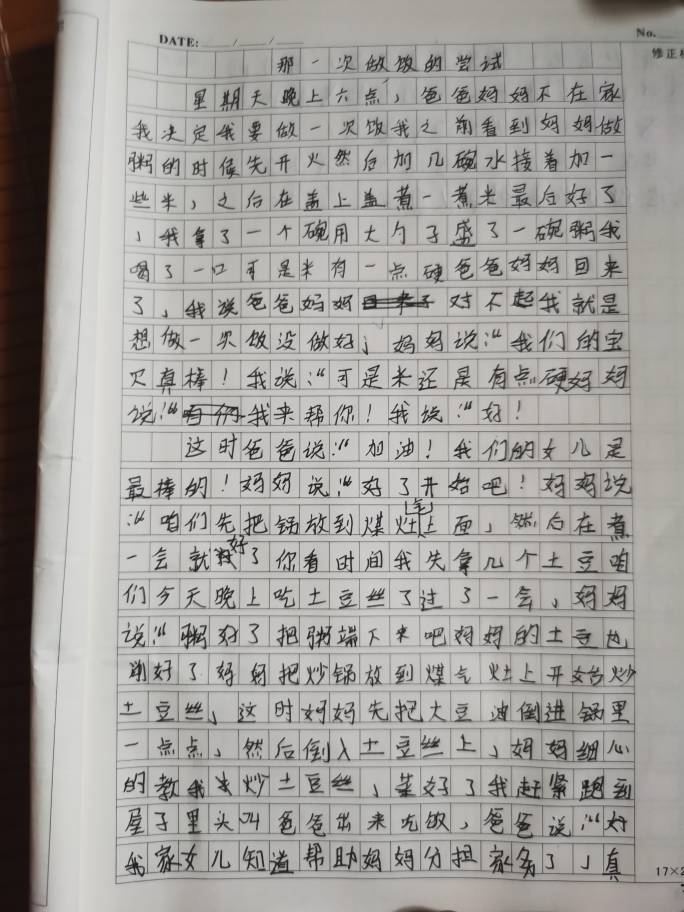 DATE: / /
No.
修正
那一次做饭的尝试
星期天晚上六点,爸爸妈妈不在家
我决定我要做一次饭我之前看到妈妈做
粥的时候先开火然后加几碗水接着加一
些米,之后在盖上盖煮一煮米最后好了
,我拿了一个碗用大勺子盛了一碗粥我
喝了一口可是米有一点硬爸爸妈妈回来
了,我说爸爸妈妈对不起我就是
想做一次饭没做好,妈妈说:“我们的宝
贝真棒!我说:“可是米还是有点硬妈妈
说:“我来帮你!我说:“好!
这时爸爸说:“加油!我们的女儿是
最棒的!妈妈说:“好了开始吧!妈妈说
:“咱们先把锅放到煤气灶上面,然后在煮
一会就好了你看时间我先拿几个土豆咱
们今天晚上吃土豆丝了过了一会,妈妈
说:“粥好了把粥端下来吧妈妈的土豆也
削好了妈妈把炒锅放到煤气灶上开始炒
土豆丝,这时妈妈先把大豆油倒进锅里
一点点,然后倒入土豆丝上,妈妈细心
的教我炒土豆丝,菜好了我赶紧跑到
屋子里头叫爸爸出来吃饭,爸爸说:“好
我家女儿知道帮助妈妈分担家务了,真
17×2